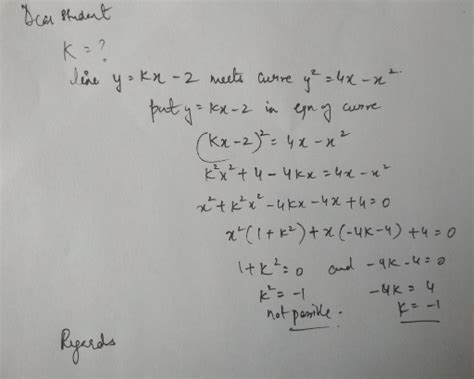 Dear student
K = ?
line y = Kx - 2 meets curve y² = 4x - x².
put y = Kx - 2 in eqn of curve
(Kx - 2)² = 4x - x²
K²x² + 4 - 4Kx = 4x - x²
x² + K²x² - 4Kx - 4x + 4 = 0
x²(1 + K²) + x(-4K - 4) + 4 = 0
1 + K² = 0 and -4K - 4 = 0
K² = -1 -4K = 4
not possible. K = -1
Regards